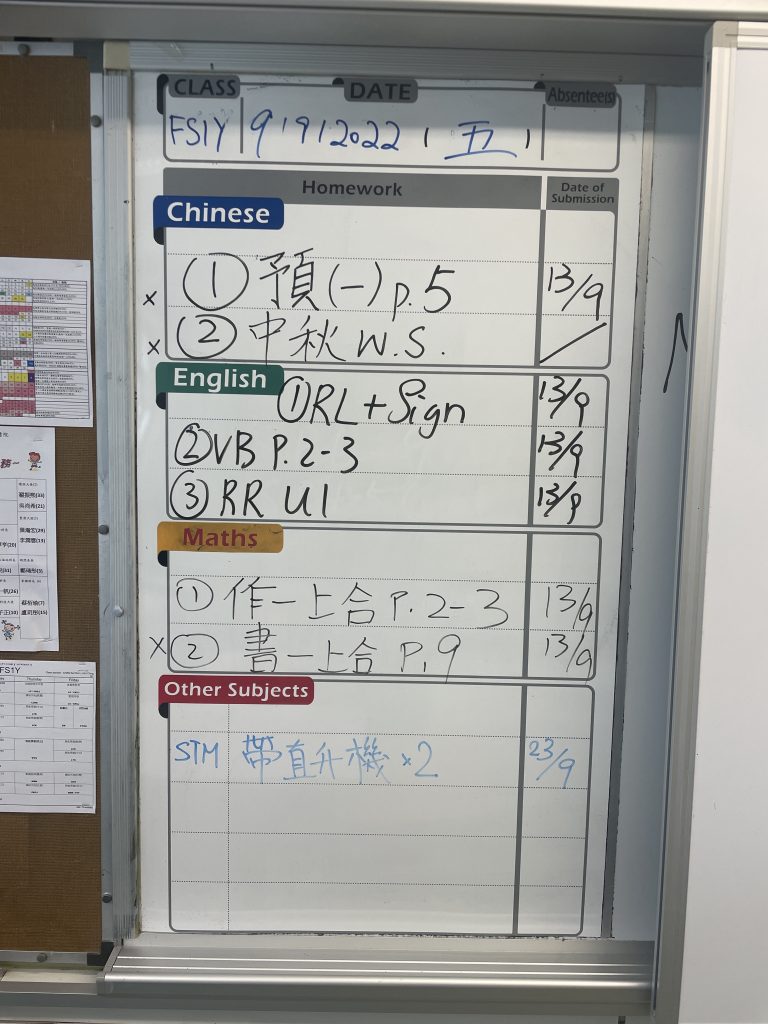 CLASS DATE Absentee(s)
FS1Y 9/9/2022 (五)
Homework Date of Submission
Chinese
x ① 預(一) p.5 13/9
x ② 中秋 W.S. /
English
① RL + Sign 13/9
② VB P.2-3 13/9
③ RR U1 13/9
Maths
① 作一上合 P.2-3 13/9
x ② 書一上合 P.9 13/9
Other Subjects
STM 帶直升機 x2 23/9
FS1Y
Thursday Friday